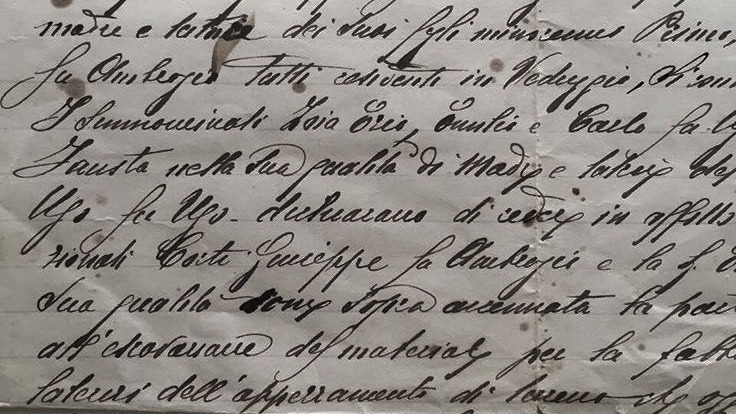 madre e tutrice dei suoi figli minorenni Primo,
fu Ambrogio tutti residenti in Vedeggio, Si con
I summominati Zoia Ezio, Emilio e Carlo fu Ug
Fausta nella sua qualità di Madre e tutrix del
Ugo fu Ugo. dichiarano di cedere in affitto
rionati Corti Giuseppe fu Ambrogio e la S.
sua qualità come sopra accennata la par
all'escavazione del materiale per la fabbr
laterizi dell'apperzamento di terreno che